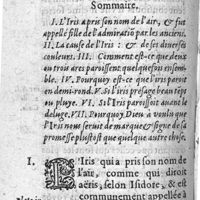 Sommaire.
I. L'Iris a pris son nom de l'air, & fut
appellé fille de l'admiratiõ par les anciens.
II. La cause de l'Iris : & de ses diverses
couleurs. III. Comment est-ce que deux
au trois arcs paroissent quelques fois ensem-
ble. IV. Pourquoy est-ce que l'iris paroit
en demi-rond. V. Si l'iris presage beau tẽps
ou pluye. VI. Si l'Iris paroissoit avant le
deluge. VII. Pourquoy Dieu à voulu que
l'Iris nous servit de marque & signe de sa
promesse plustost que quelque autre chose.
I. L'Iris qui a pris son nom de
l'air, comme qui diroit
aëris, selon Isidore, & est
communement appellée à